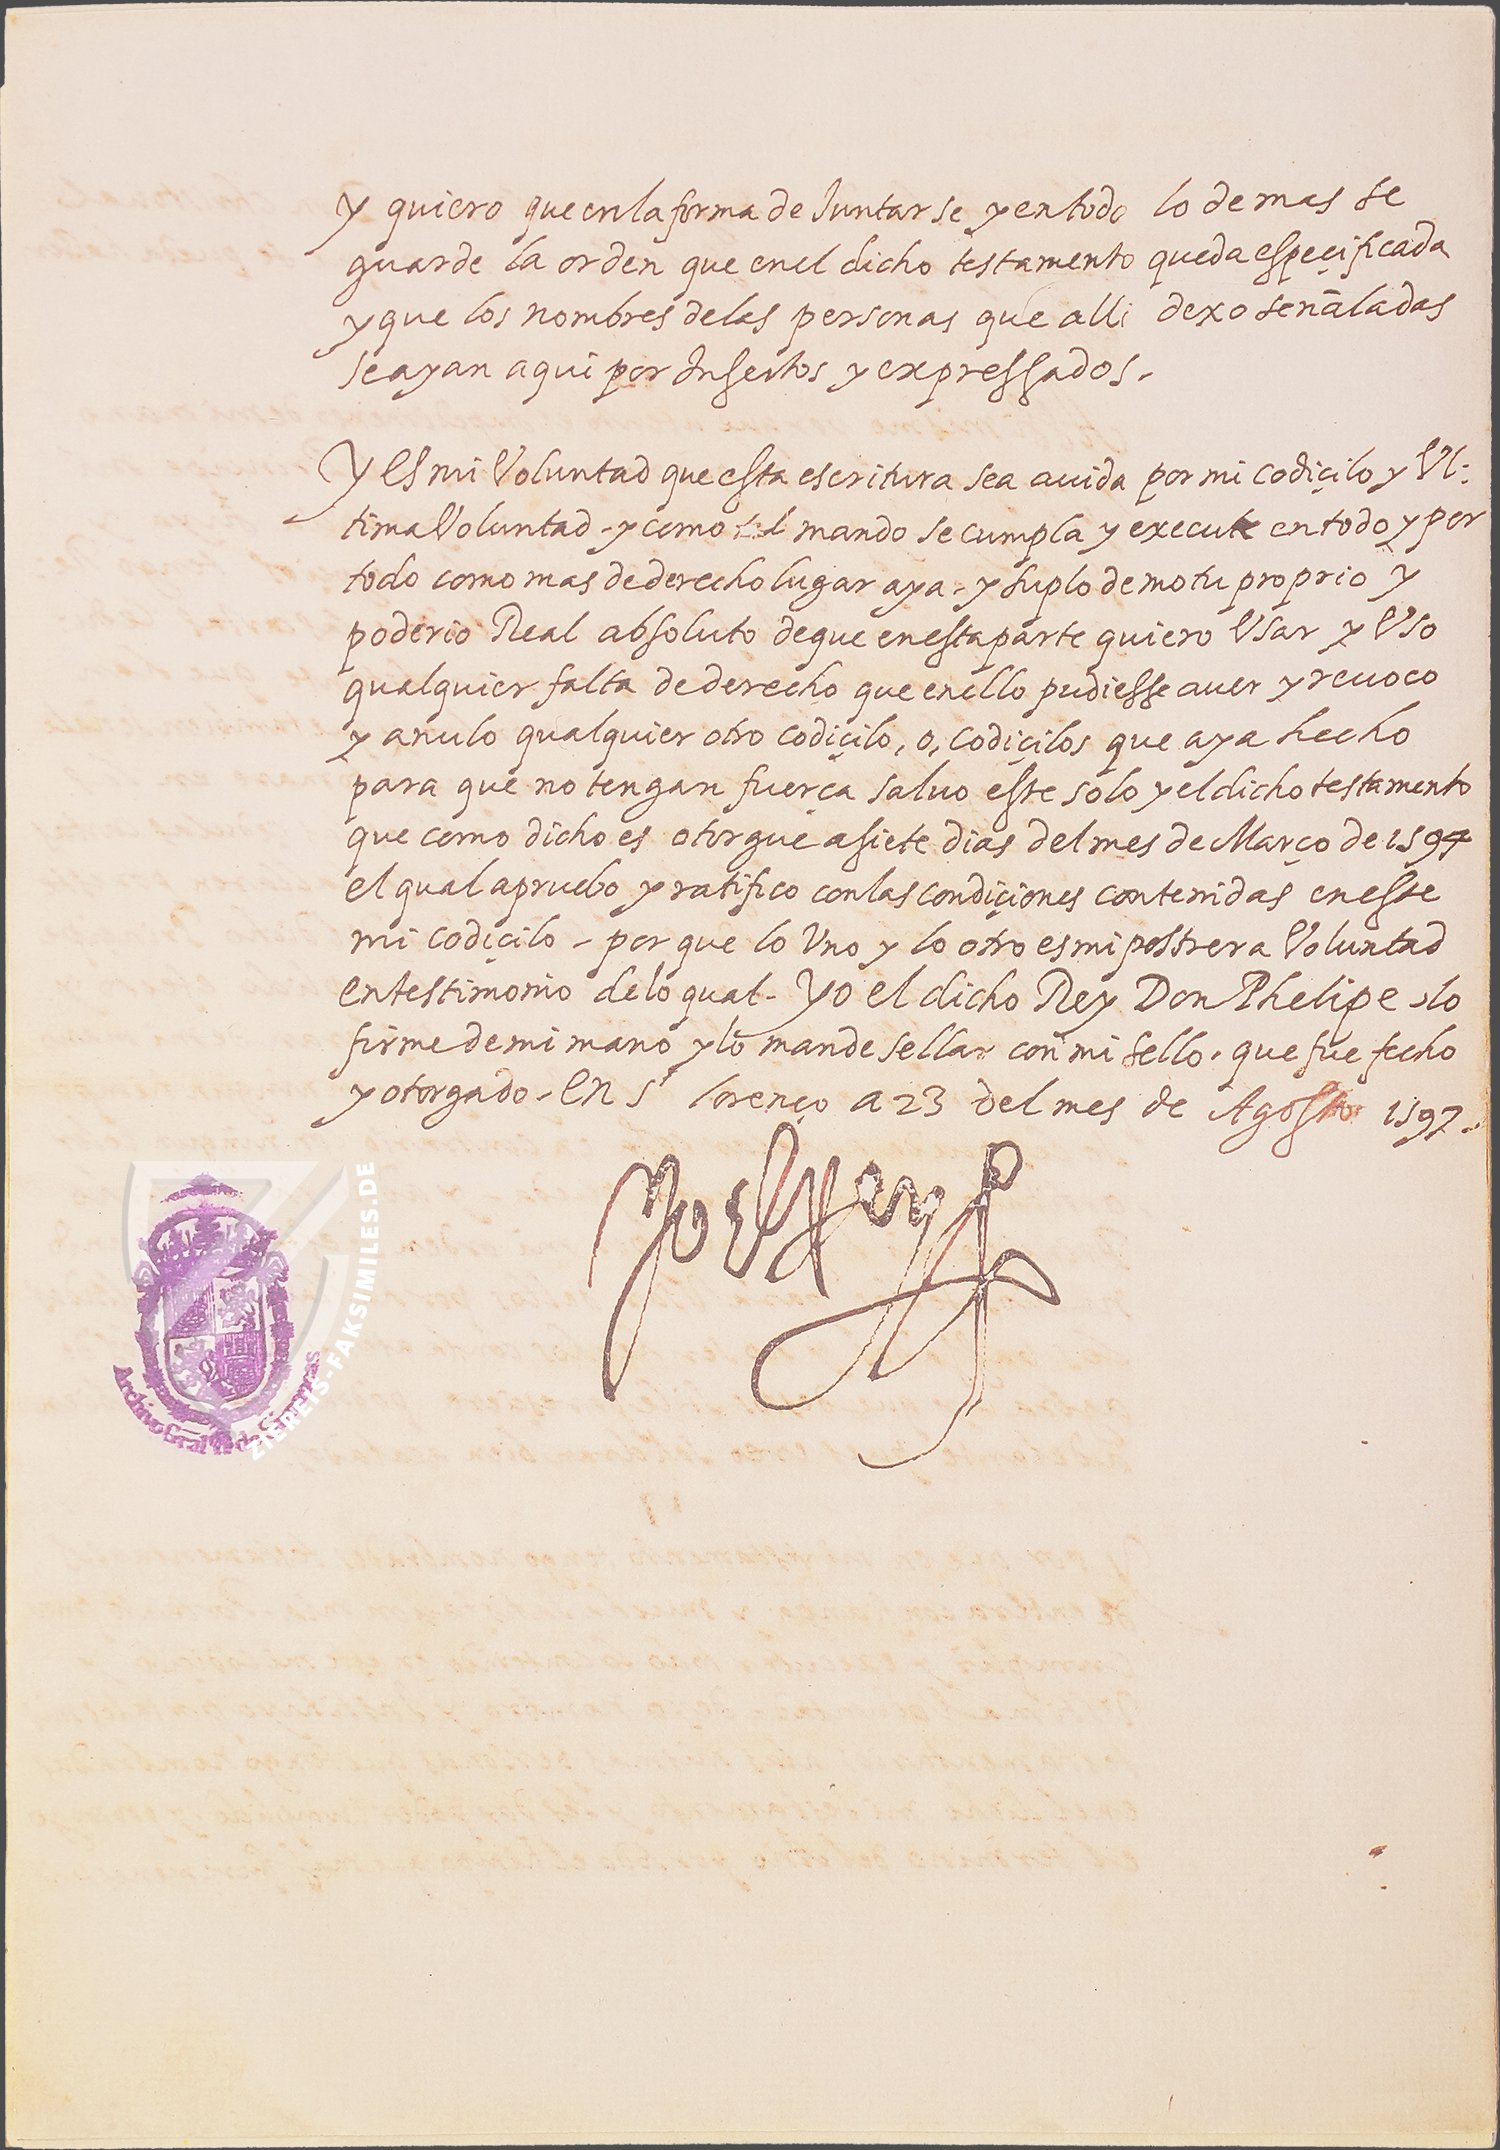 Y quiero que en la forma de Juntarse y en todo lo demas se
guarde la orden que en el dicho testamento queda especificada
y que los nombres de las personas que alli dexo señaladas
se ayan aqui por Insertos y expressados.
Y Es mi Voluntad que esta escritura sea auida por mi codiçilo y Vl-
tima Voluntad - y como tal mando se cumpla y execute en todo y por
todo como mas de derecho lugar aya - y suplo de motu proprio y
poderio Real absoluto de que en esta parte quiero Vsar y Vso
qualquier falta de derecho que en ello pudiesse auer y reuoco
y anulo qualquier otro codiçilo, o, codiçilos que aya hecho
para que no tengan fuerça saluo este solo y el dicho testamento
que como dicho es otorgue a siete dias del mes de Março de 1594
el qual apruebo y ratifico con las condiçiones contenidas en este
mi codiçilo - porque lo Vno y lo otro es mi postrera Voluntad
en testimonio de lo qual - Yo el dicho Rey Don Phelipe lo
firme de mi mano y lo mande sellar con mi sello. que fue fecho
y otorgado - En St lorenço a 23 del mes de Agosto 1597.
Yo el Rey
Archivo Gral de Simancas
ZIEREIS-FAKSIMILES.DE